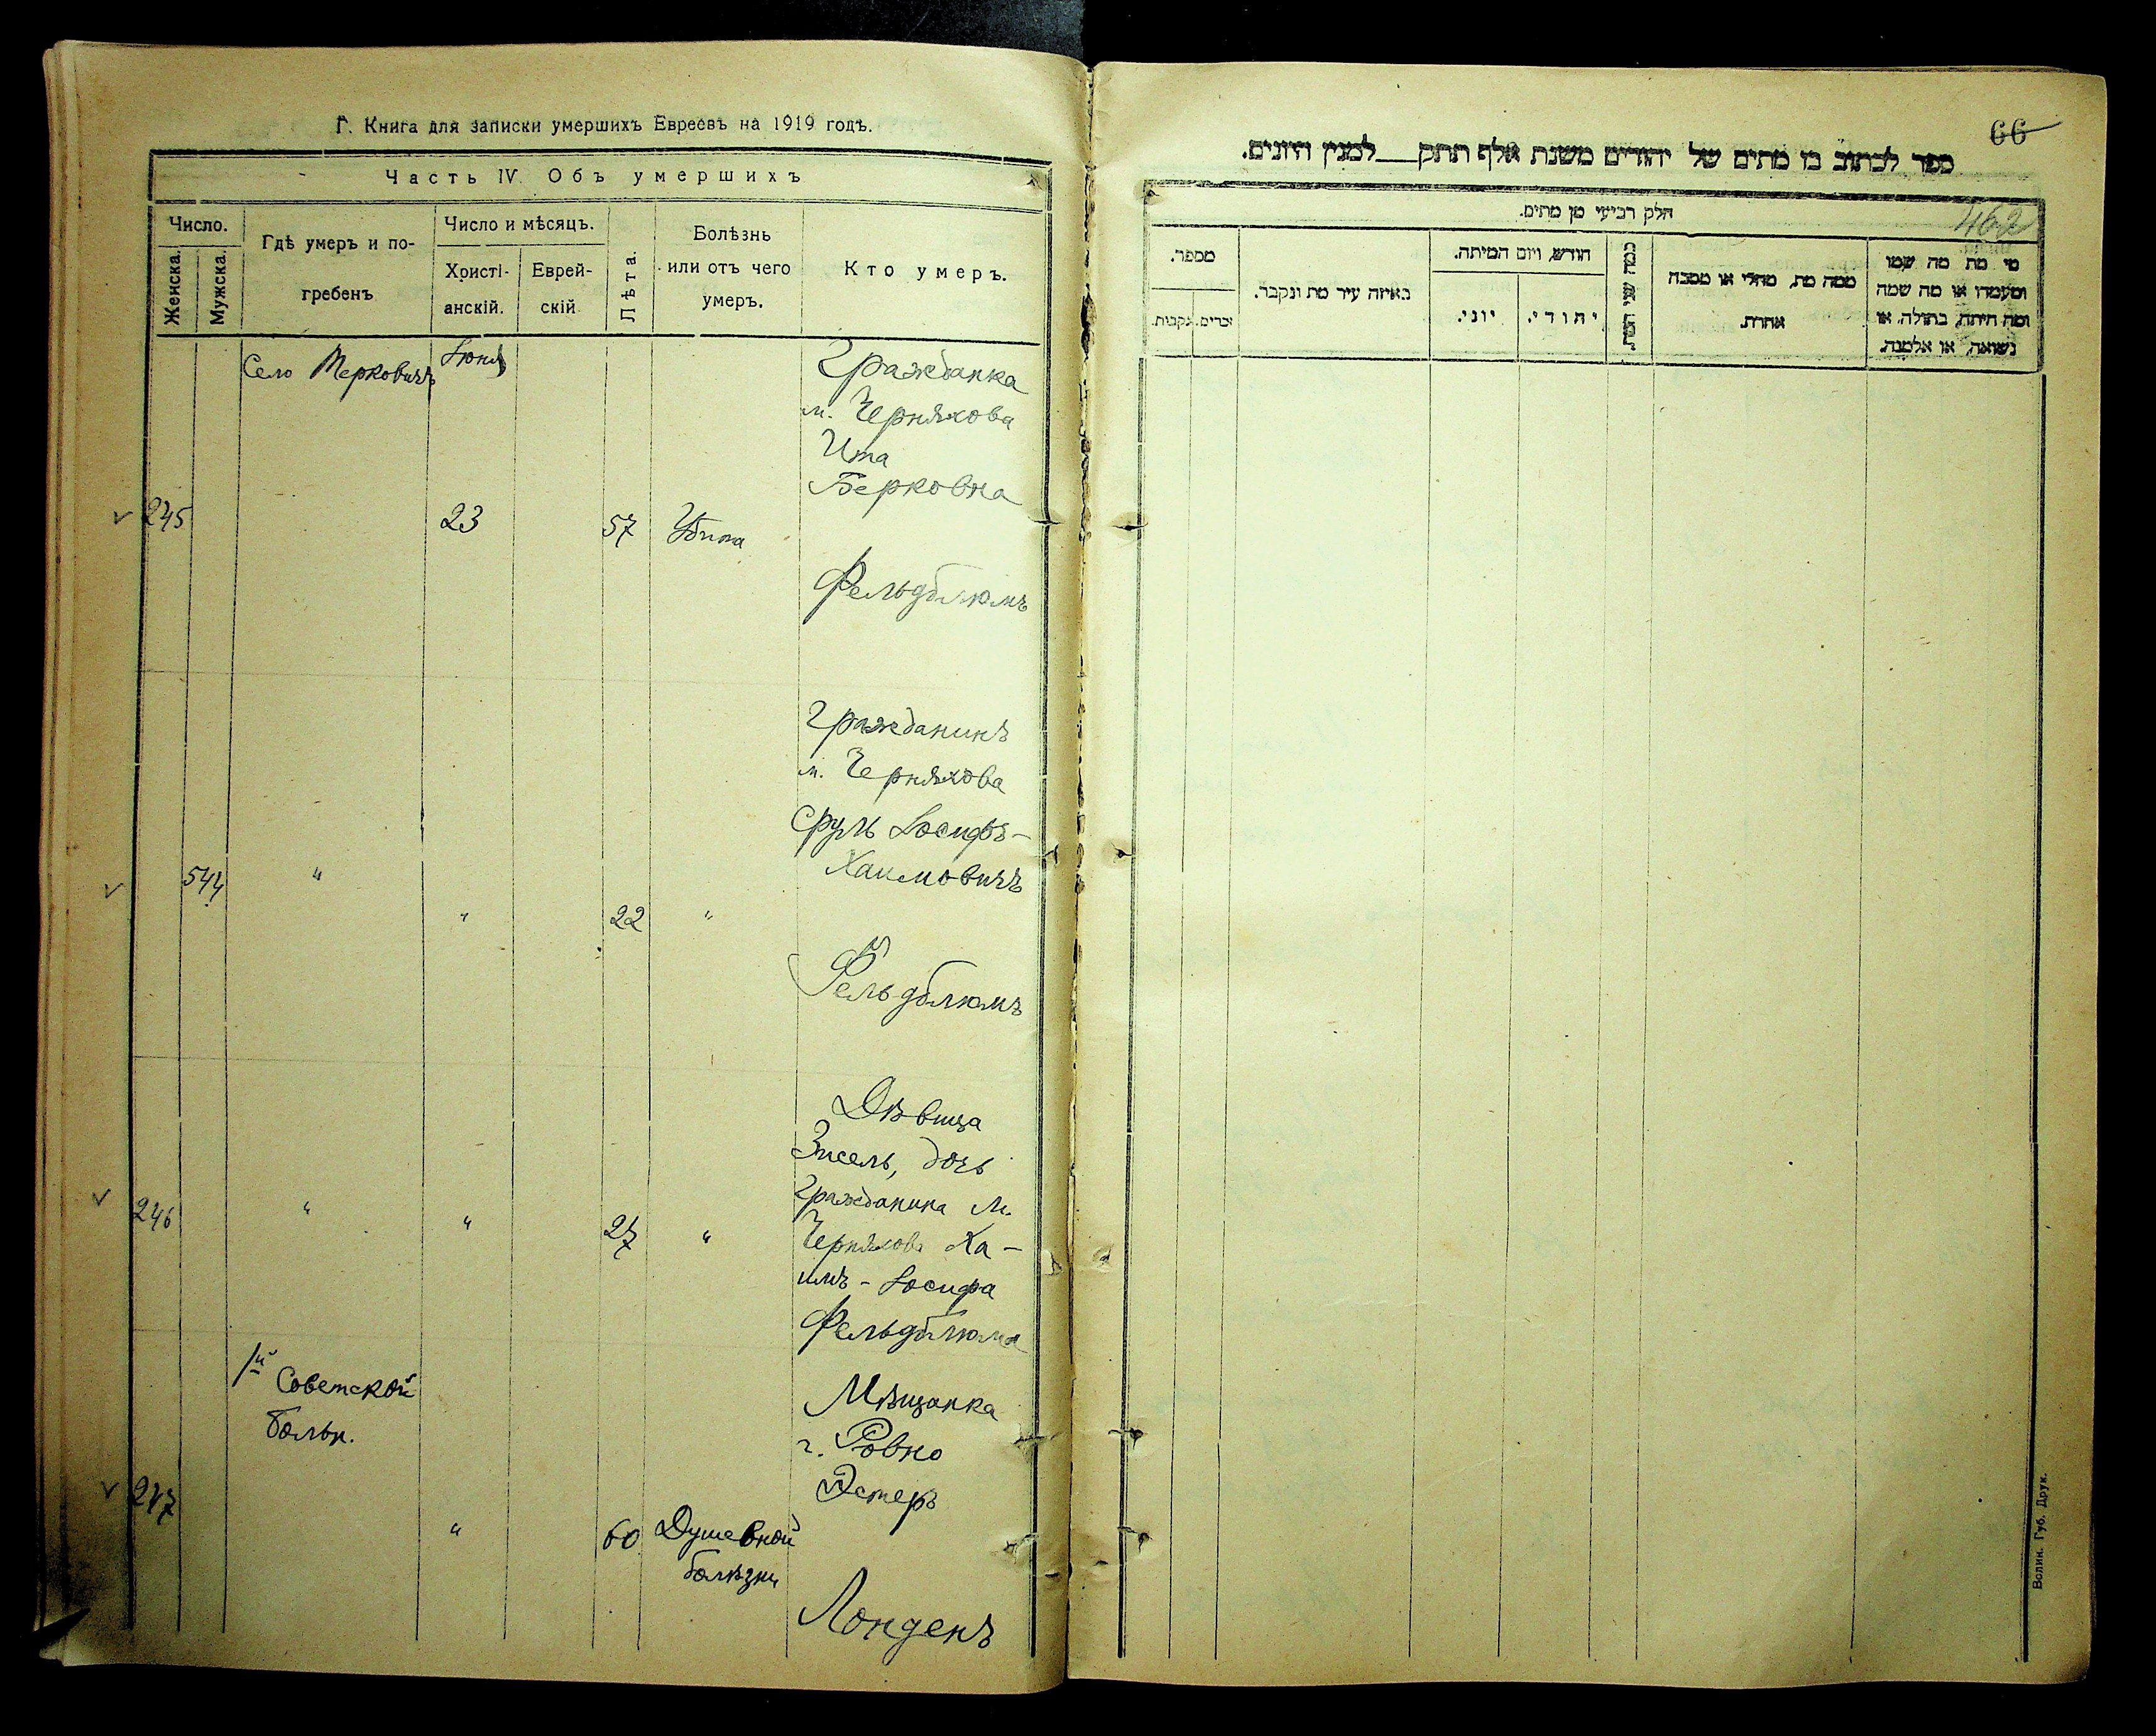 Г. Книга для записки умершихъ Евреевъ на 1919 годъ.
Часть IV. Объ умершихъ
Число.
Женска.
Мужска.
Гдѣ умеръ и по-
гребенъ
Число и мѣсяцъ.
Христі-
анскій.
Еврей-
скій
Лѣта.
Болѣзнь
или отъ чего
умеръ.
Кто умеръ.
Село
Іюня
Гражданка
м. Черняхова
Ита
Берковна
245
23
57
Убита
Фельдблюмъ
Гражданинъ
м. Черняхова
Сруль Іосифъ-
Хаимовичъ
544
"
"
22
"
Фельдблюмъ
Дѣвица
Зисель, дочь
Гражданина м.
Черняхова Ха-
имъ-Іосифа
Фельдблюма
246
"
"
27
"
1й Советской
больн.
Мѣщанка
г. Ровно
Эстеръ
247
"
60
Душевной
болѣзни
Лонденъ
66
ספר לכתוב בו מתים של יהודים משנת אלף תתק למנין היונים.
חלק רביעי מן מתים.
462
מספר.
זכרים.
נקבות.
באיזה עיר מת ונקבר.
חודש, ויום המיתה.
יוני.
יהודי.
כמה שני המת.
ממה מת, מחלי או מסבה
אחרת.
מי מת מה שמו
ומעמדו או מה שמה
ומה היתה, בתולה, או
נשואה, או אלמנה.
Волин. Губ. Друк.